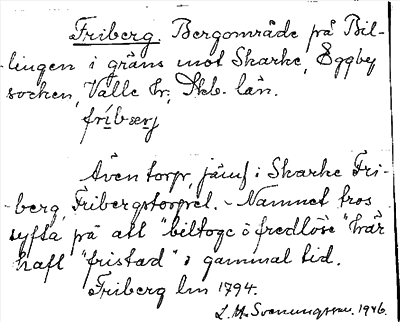 Friberg. Bergområde på Bil-
lingen i gräns mot Skarke, Eggby
socken, Valle hr, Skb. län.
fríbærj
Även torp, jämf i Skarke Fri-
berg, Fribergstorpet. - Namnet tros
syfta på att "biltoge o fredlöse" här
haft "fristad" i gammal tid.
Friberg lm 1794.
L. M. Svenungsson. 1946.